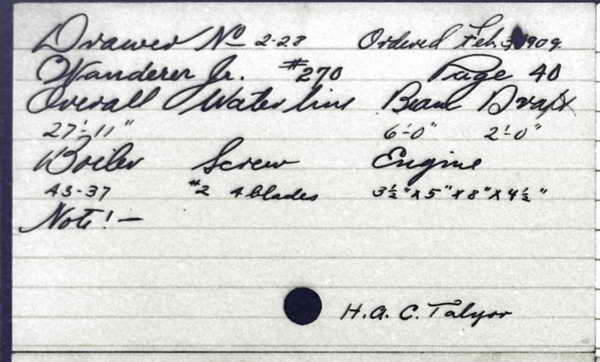 Drawer No 2-28 Ordered Feb. 3, 1909.
Wanderer Jr. #270 Page 40
Overall Waterline Beam Draft
27'-11" 6'-0" 2'-0"
Boiler Screw Engine
AS-37 #2 4 blades 3½"x5"x8"x4½"
Note!—
H.A.C. Talyor